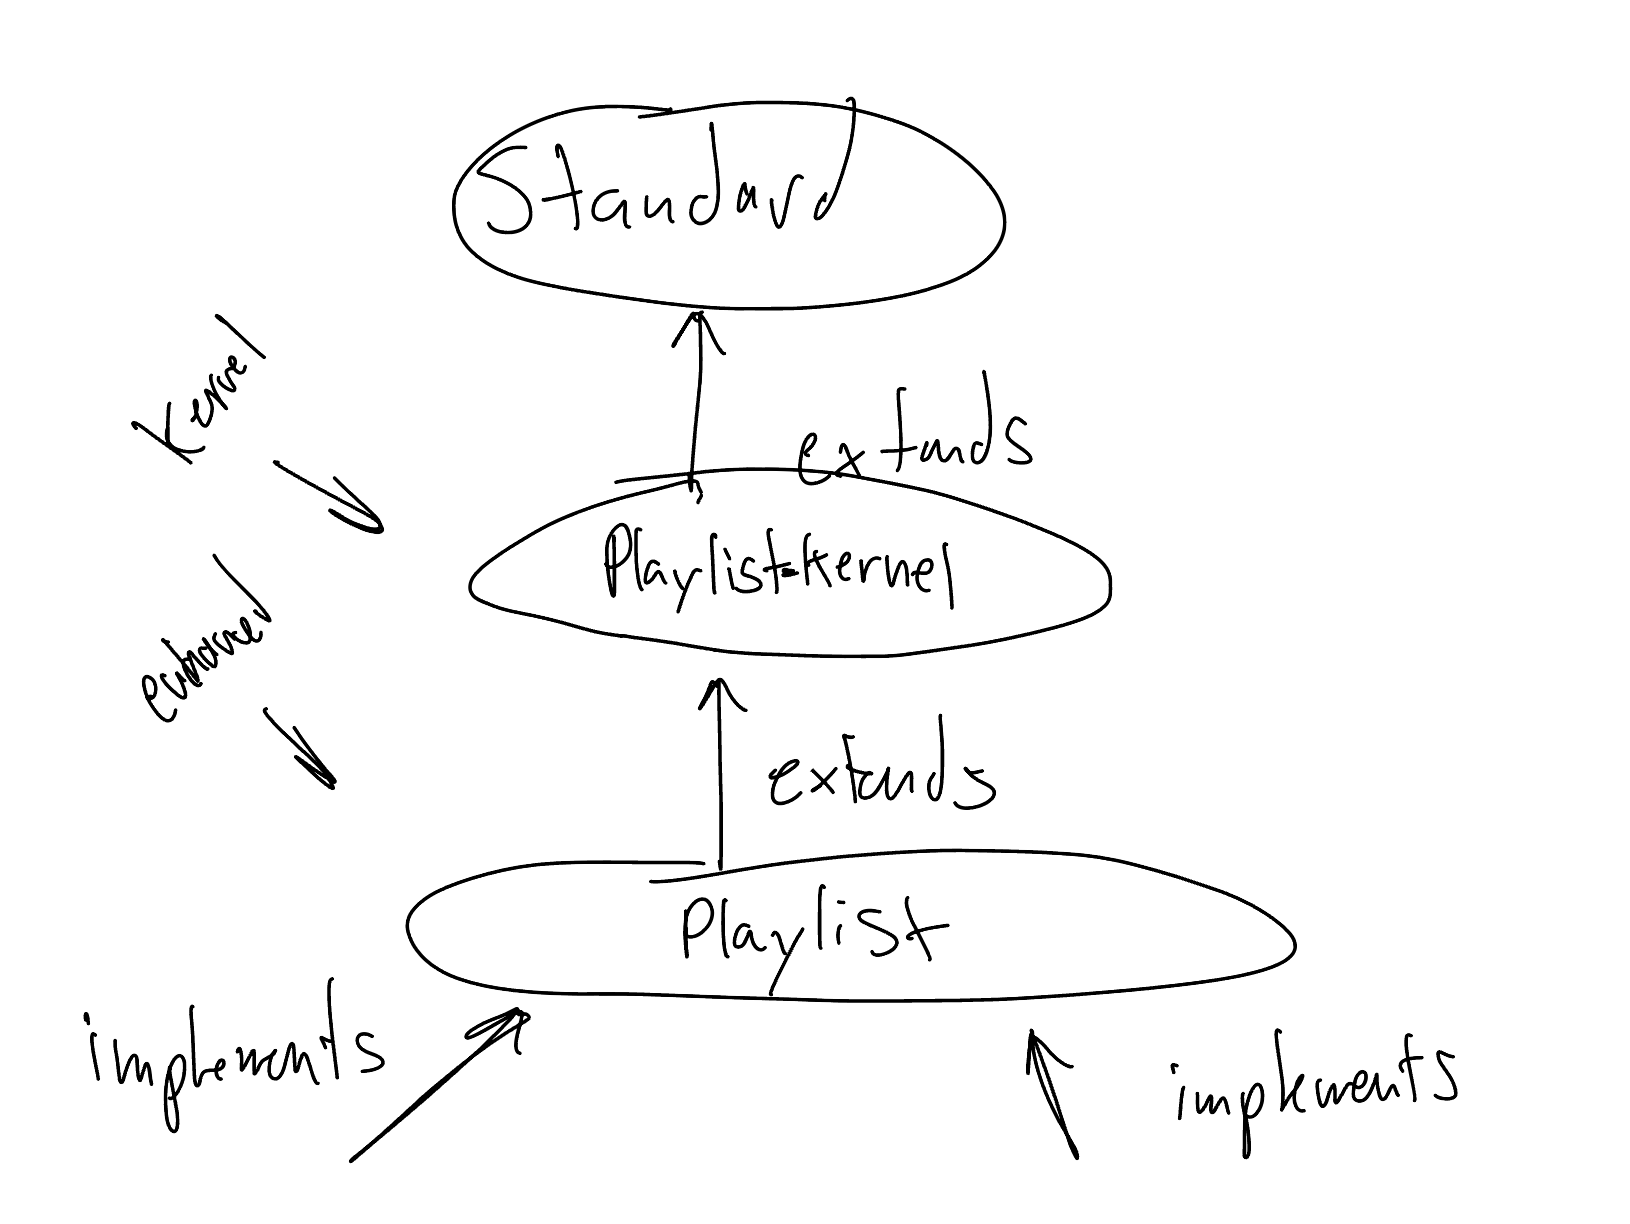 Standard
Kernel
extends
Playlist-Kernel
enhanced
extends
Playlist
implements
implements